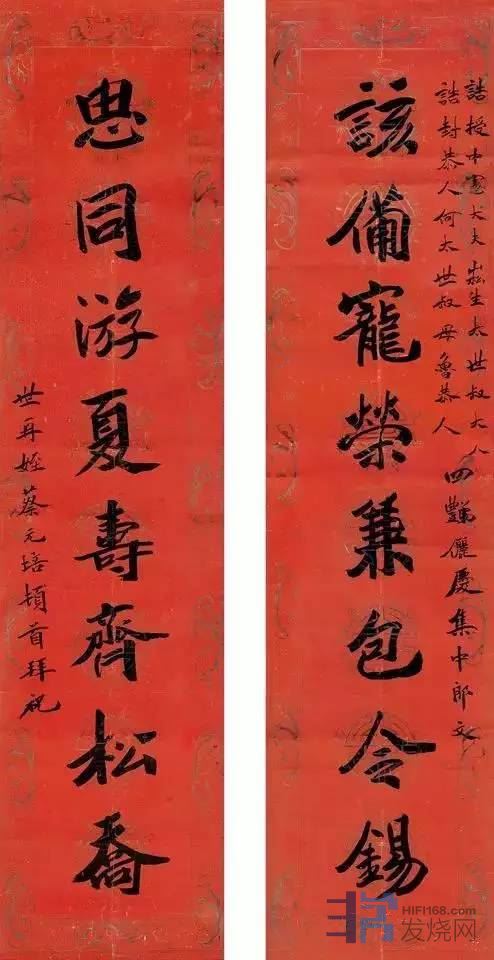 誥授中憲大夫崧生太世叔大人
誥封恭人何太世叔母魯恭人
四豑儷慶集中郎文
該備寵榮兼包令錫
思同游夏壽齊松喬
世再姪蔡元培頓首拜祝
HIFI168.com
发烧网